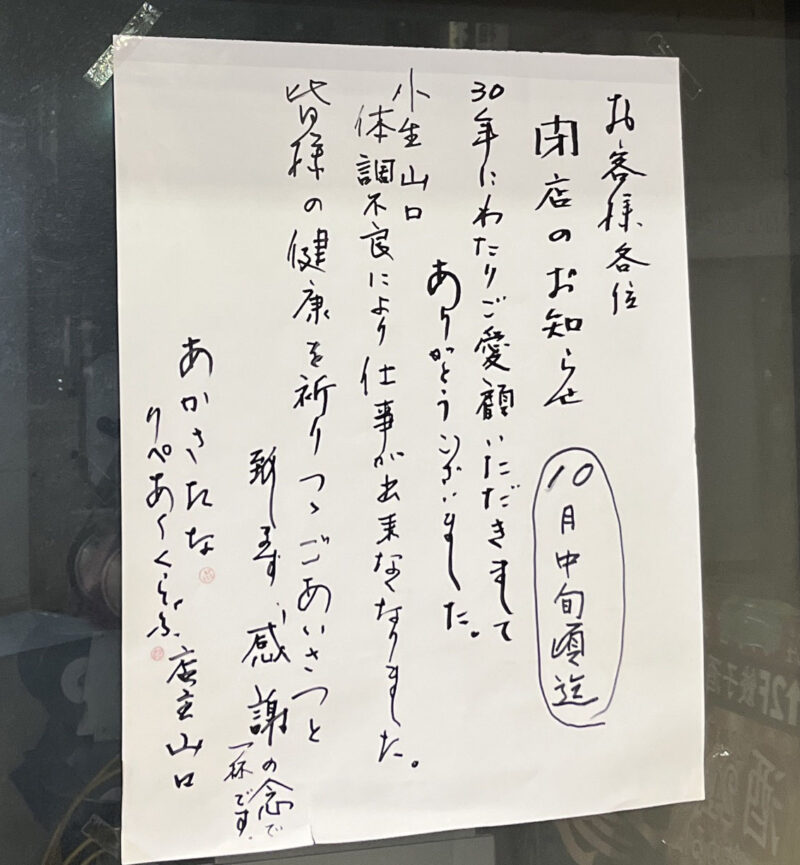 お客様各位
閉店のお知らせ
10月中旬頃迄
30年にわたりご愛顧いただきまして
ありがとうございました。
小生山口
体調不良により仕事が出来なくなりました。
皆様の健康を祈りつゝごあいさつと
致します、感謝の念で
一杯です。
あかさたな
りぺあくらぶ 店主山口
12F餃子酒